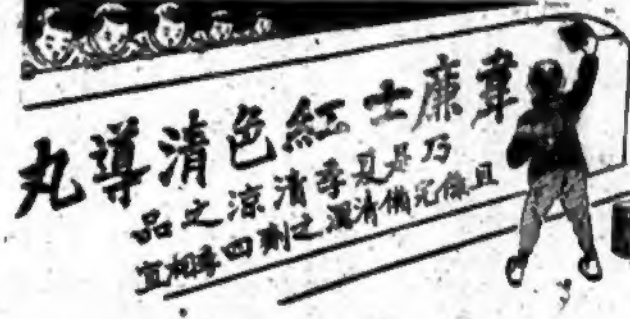 韋廉士紅色清導丸
乃是夏季清涼之品
且係完備清潤之劑四季相宜